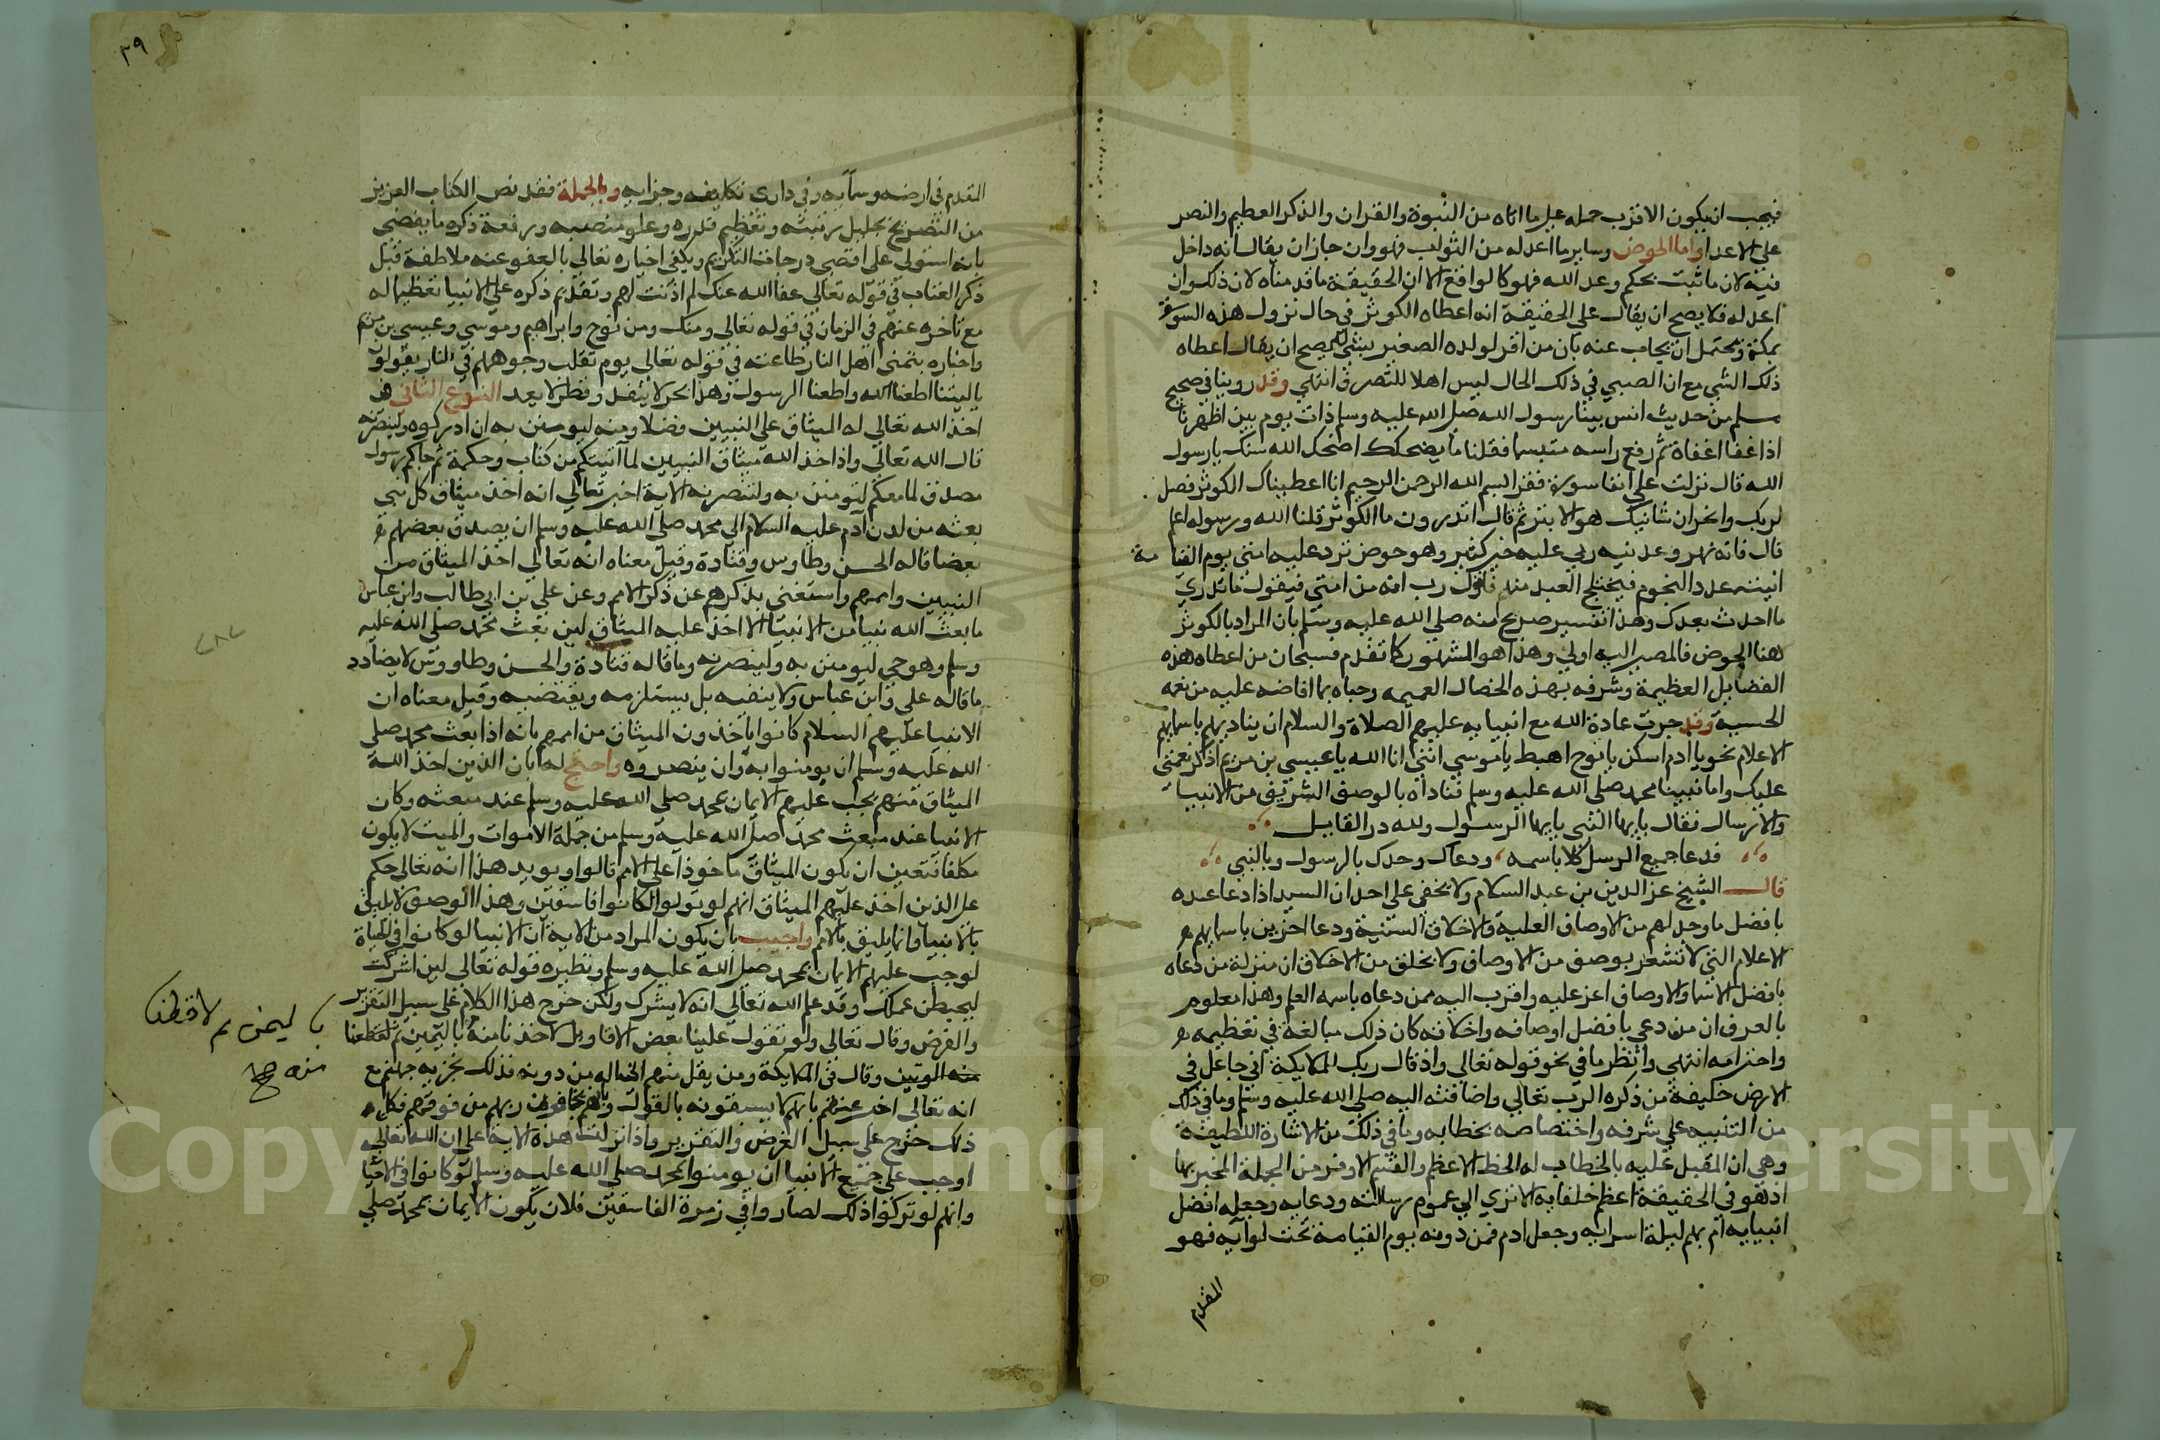 فيجب ان يكون الاقرب حمله على ما اتاه من النبوة والقران والذكر العظيم والنصر
على الاعدا واما الحوض وساير ما اعد له من الثواب فهو وان جاز ان يقال انه داخل
فيه لان ما ثبت بحكم وعد الله فهو كالواقع الا ان الحقيقة ما قدمناه لان ذلك وان
اعد له فلا يصح ان يقال على الحقيقة انه اعطاه الكوثر في حال نزول هذه السورة
بمكة ويحتمل ان يجاب عنه بان من اقر لولده الصغير بشي يصح ان يقال اعطاه
ذلك الشي مع ان الصبي في ذلك الحال ليس اهلا للتصرف انتهي وقد روينا في صحيح
مسلم من حديث انس بينا رسول الله صلى الله عليه وسلم ذات يوم بين اظهرنا
اذا غفا اغفاة ثم رفع راسه متبسما فقلنا ما يضحكك اضحك الله سنك يا رسول
الله قال نزلت علي انفا سورة فقرا بسم الله الرحمن الرحيم انا اعطيناك الكوثر فصل
لربك وانحر ان شانيك هو الابتر ثم قال اتدرون ما الكوثر قلنا الله ورسوله اعلم
قال فانه نهر وعدنيه ربي عليه خير كثير وهو حوض ترد عليه امتي يوم القيامة
انيته عدد النجوم فيختلج العبد منهم فاقول رب انه من امتي فيقول ما تدري
ما احدث بعدك وهذا تفسير صريح منه صلى الله عليه وسلم بان المراد بالكوثر
هنا الحوض فالمصير اليه اولي وهذا هو المشهور كما تقدم فسبحان من اعطاه هذه
الفضايل العظيمة وشرفه بهذه الخصال العميمه وحباه بما افاضه عليه من نعمه
الجسيمة وقد جرت عادة الله مع انبيايه عليهم الصلاة والسلام ان يناديهم باسمايهم
الاعلام نحو يا ادم اسكن يا نوح اهبط يا موسي انني انا الله يا عيسي بن مريم اذكر نعمتي
عليك واما نبينا محمد صلى الله عليه وسلم فناداه بالوصف الشريف من الانبيا
والارسال فقال يا يها النبي يا يها الرسول ولله در القايل
فدعا جميع الرسل كلا باسمه ودعاك وحدك بالرسول وبالنبي
قال الشيخ عز الدين بن عبد السلام ولا يخفي على احد ان السيد اذا دعا عبده
بافضل ما وجد لهم من الاوصاف العلية والاخلاق السنية ودعا اخرين باسمايهم
الاعلام التي لا تشعر بوصف من الاوصاف ولا بخلق من الاخلاق ان منزلة من دعاه
بافضل الاسما والاوصاف اعز عليه واقرب اليه ممن دعاه باسمه العلم وهذا معلوم
بالعرف ان من دعي بافضل اوصافه واخلاقه كان ذلك مبالغة في تعظيمه
واحترامه انتهي وانظر ما في نحو قوله تعالى واذ قال ربك للملايكة اني جاعل في
الارض خليفة من ذكره الرب تعالي واضافته اليه صلى الله عليه وسلم وما في ذلك
من التنبيه على شرفه واختصاصه بخطابه وما في ذلك من الاشارة اللطيفة
وهي ان المقبل عليه بالخطاب له الحظ الاعظم والقسم الاوفر من الجملة المخبر بها
اذ هو في الحقيقة اعظم خلفايه الا تري الي عموم رسالته ودعايه وجعله افضل
انبيايه ام بهم ليلة اسرايه وجعل ادم فمن دونه يوم القيامة تحت لوايه فهو
المقدم
٣٩
المقدم في ارضه وسمايه وفي داري تكليفه وجزايه وبالجملة فقد نص الكتاب العزيز
من التصريح بجليل رتبته وتعظيم قدره وعلو منصبه ورفعة ذكره ما يفضي
بانه استولي على اقصي درجات التكريم ويكفي اخباره تعالي بالعفو عنه ملاطفة قبل
ذكر العتاب في قوله تعالي عفا الله عنك لم اذنت لهم وتقديم ذكره على الانبيا تعظيما له
مع تاخره عنهم في الزمان في قوله تعالي ومنك ومن نوح وابراهيم وموسي وعيسي بن مريم
واخباره بتمني اهل النار طاعته في قوله تعالى يوم تقلب وجوههم في النار يقولون
يا ليتنا اطعنا الله واطعنا الرسول وهذا بحر لا ينفد وقطر لا يعد النوع الثاني في
اخذ الله تعالي له الميثاق على النبيين فضلا ومنه ليومنن به ان ادركوه ولينصرنه
قال الله تعالي واذ اخذ الله ميثاق النبيين لما آتيتكم من كتاب وحكمة ثم جاكم رسول
مصدق لما معكم لتومنن به ولتنصرنه الاية اخبر تعالي انه اخذ ميثاق كل نبي
بعثه من لدن آدم عليه السلام الي محمد صلى الله عليه وسلم ان يصدق بعضهم
بعضا قاله الحسن وطاوس وقتادة وقيل معناه انه تعالي اخذ الميثاق من
النبيين واممهم واستغني بذكرهم عن ذكر الامم وعن علي بن ابي طالب وابن عباس
ما بعث الله نبيا من الانبيا الا اخذ عليه الميثاق لين بعث محمد صلى الله عليه
وسلم وهو حي ليومنن به ولينصرنه وما قاله قتادة والحسن وطاووس لا يضادد
ما قاله علي وابن عباس ولا ينفيه بل يستلزمه ويقتضيه وقيل معناه ان
الانبيا عليهم السلام كانوا ياخذون الميثاق من اممهم بانه اذا بعث محمد صلى
الله عليه وسلم ان يومنوا به وان ينصروه واحتج له بان الذين اخذ الله
الميثاق منهم يجب عليهم الايمان بمحمد صلى الله عليه وسلم عند مبعثه وكان
الانبيا عند مبعث محمد صلى الله عليه وسلم من جملة الاموات والميت لا يكون
مكلفا فتعين ان يكون الميثاق ماخوذا على الامم قالوا ويويد هذا انه تعالى حكم
على الذين اخذ عليهم الميثاق انهم لو تولوا لكانوا فاسقين وهذا الوصف لا يليق
بالانبيا وانما يليق بالامم واجيب بان يكون المراد من الاية ان الانبيا لو كانوا في الحياة
لوجب عليهم الايمان بمحمد صلى الله عليه وسلم ونظيره قوله تعالي لين اشركت
ليحبطن عملك وقد علم الله تعالي انه لا يشرك ولكن خرج هذا الكلام على سبيل التقدير
والفرض وقال تعالى ولو تقول علينا بعض الاقاويل لاخذنا منه باليمين ثم لقطعنا
منه الوتين وقال في الملايكة ومن يقل منهم اني اله من دونه فذلك نجزيه جهنم مع
انه تعالى اخبر عنهم بانهم لا يسبقونه بالقول وبانهم يخافون ربهم من فوقهم فكل
ذلك خرج على سبيل الفرض والتقدير واذا نزلت هذه الاية على ان الله تعالي
اوجب على جميع الانبيا ان يومنوا بمحمد صلى الله عليه وسلم لو كانوا في الاحيا
وانهم لو تركوا ذلك لصاروا في زمرة الفاسقين فلان يكون الايمان بمحمد صلى
باليمن ثم لاقطنا
منه صح
Copy
University